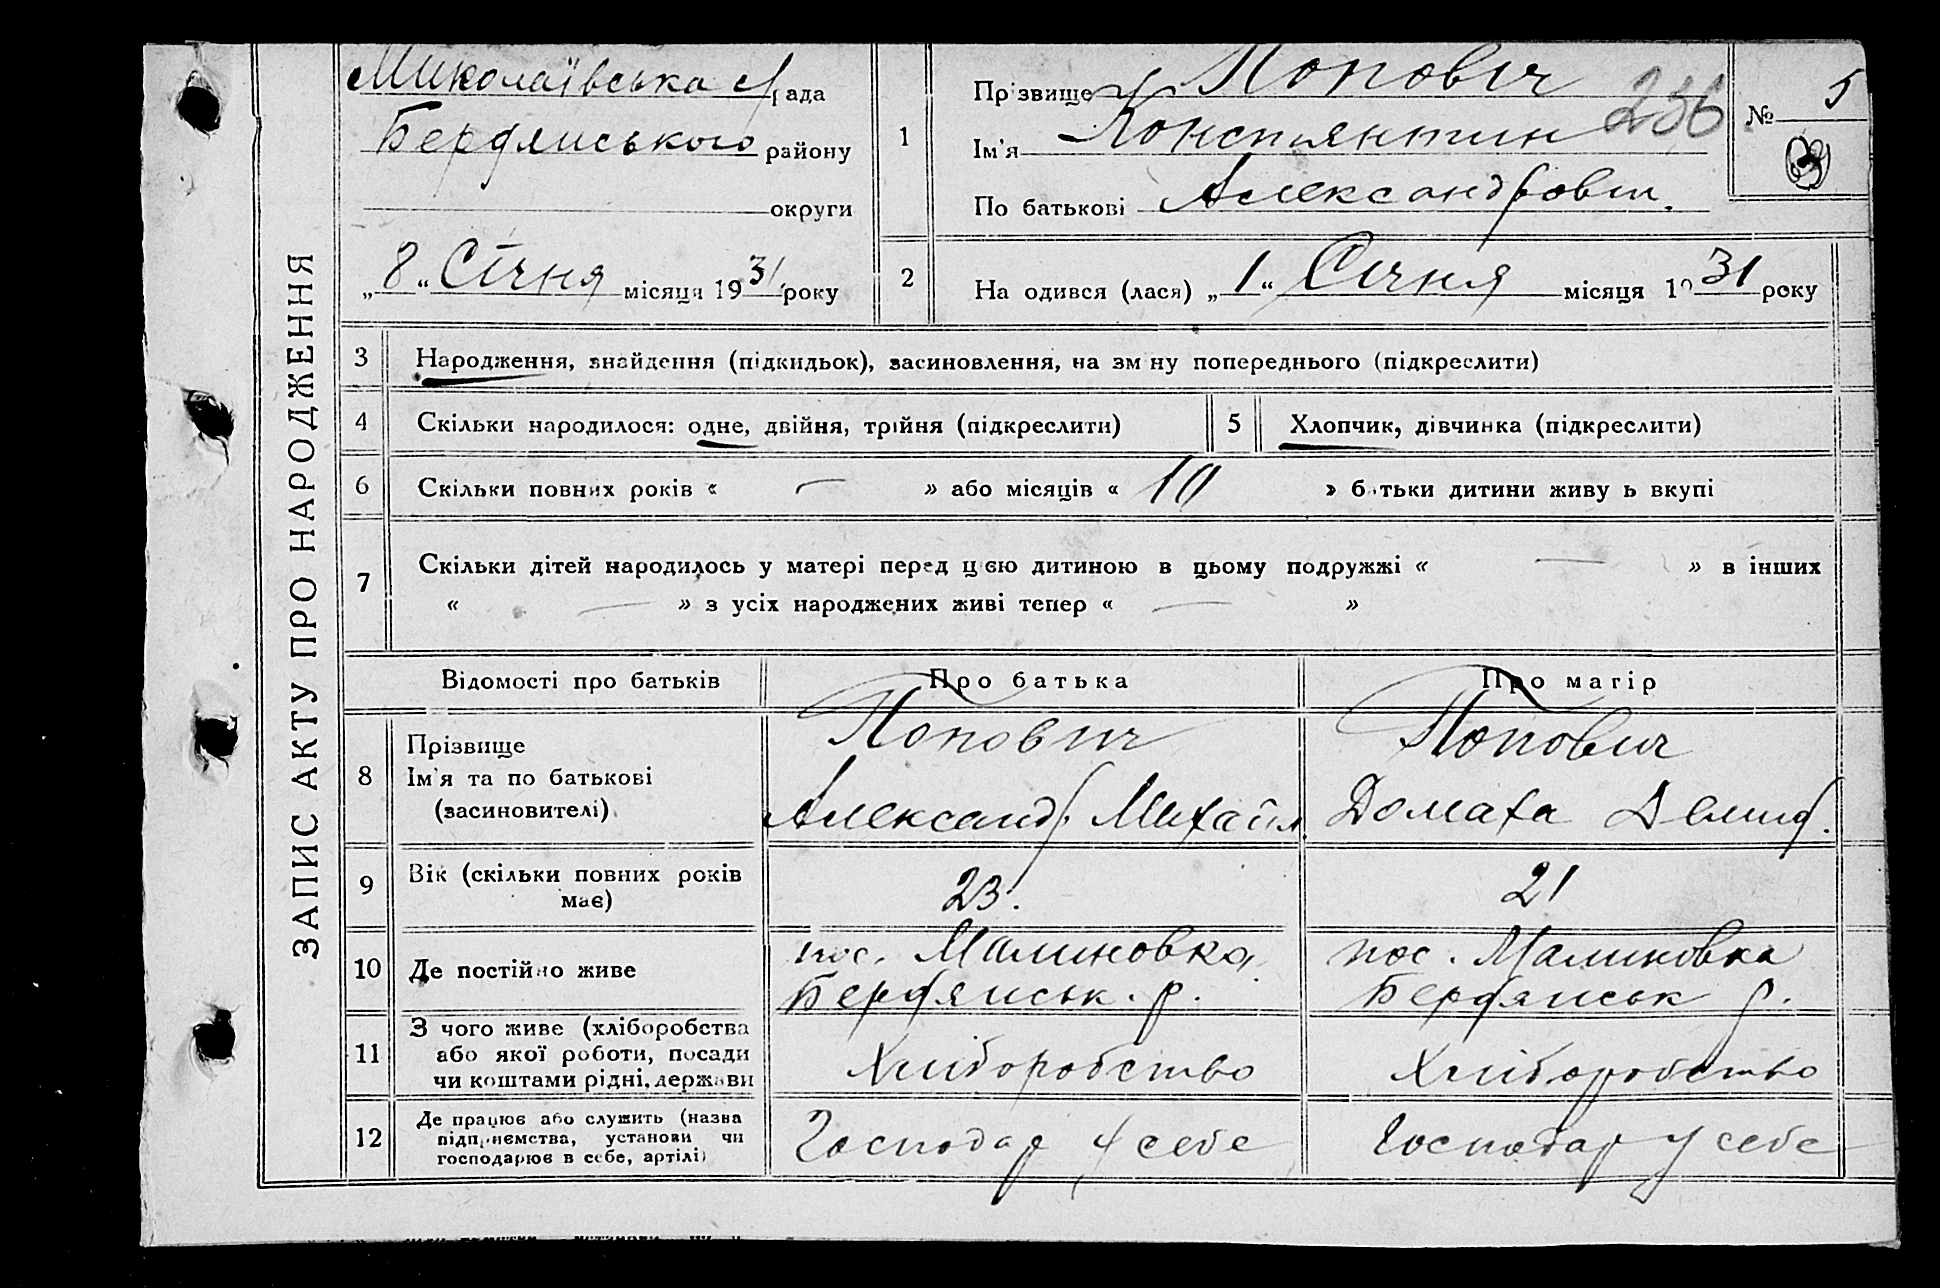 ЗАПИС АКТУ ПРО НАРОДЖЕННЯ
Миколаївська с/рада
Бердянського району
округи
„8“ Січня місяця 1931 року
1
Прізвище Попович
Ім'я Констянтин
По батькові Александрович.
236
№ 5
2
На одився (лася) „1“ Січня місяця 1931 року
3 Народження, знайдення (підкидьок), засиновлення, на зм ну попереднього (підкреслити)
4 Скільки народилося: одне, двійня, трійня (підкреслити)
5 Хлопчик, дівчинка (підкреслити)
6 Скільки повних років « — » або місяців « 10 » батьки дитини живу ь вкупі
7 Скільки дітей народилось у матері перед цією дитиною в цьому подружжі « — » в інших
« — » з усіх народжених живі тепер « — »
Відомості про батьків Про батька Про матір
8
Прізвище
Ім'я та по батькові
(засиновителі)
Попович
Александр Михайл.
Попович
Домаха Демид.
9
Вік (скільки повних років
має)
23.
21
10 Де постійно живе
пос. Малиновка
Бердянськ. р.
пос. Малиновка
Бердянськ р.
11
З чого живе (хліборобства
або якої роботи, посади
чи коштами рідні, держави
Хліборобство
Хліборобство
12
Де працює або служить (назва
підприємства, установи чи
господарює в себе, артілі)
Господар у себе
Господар у себе